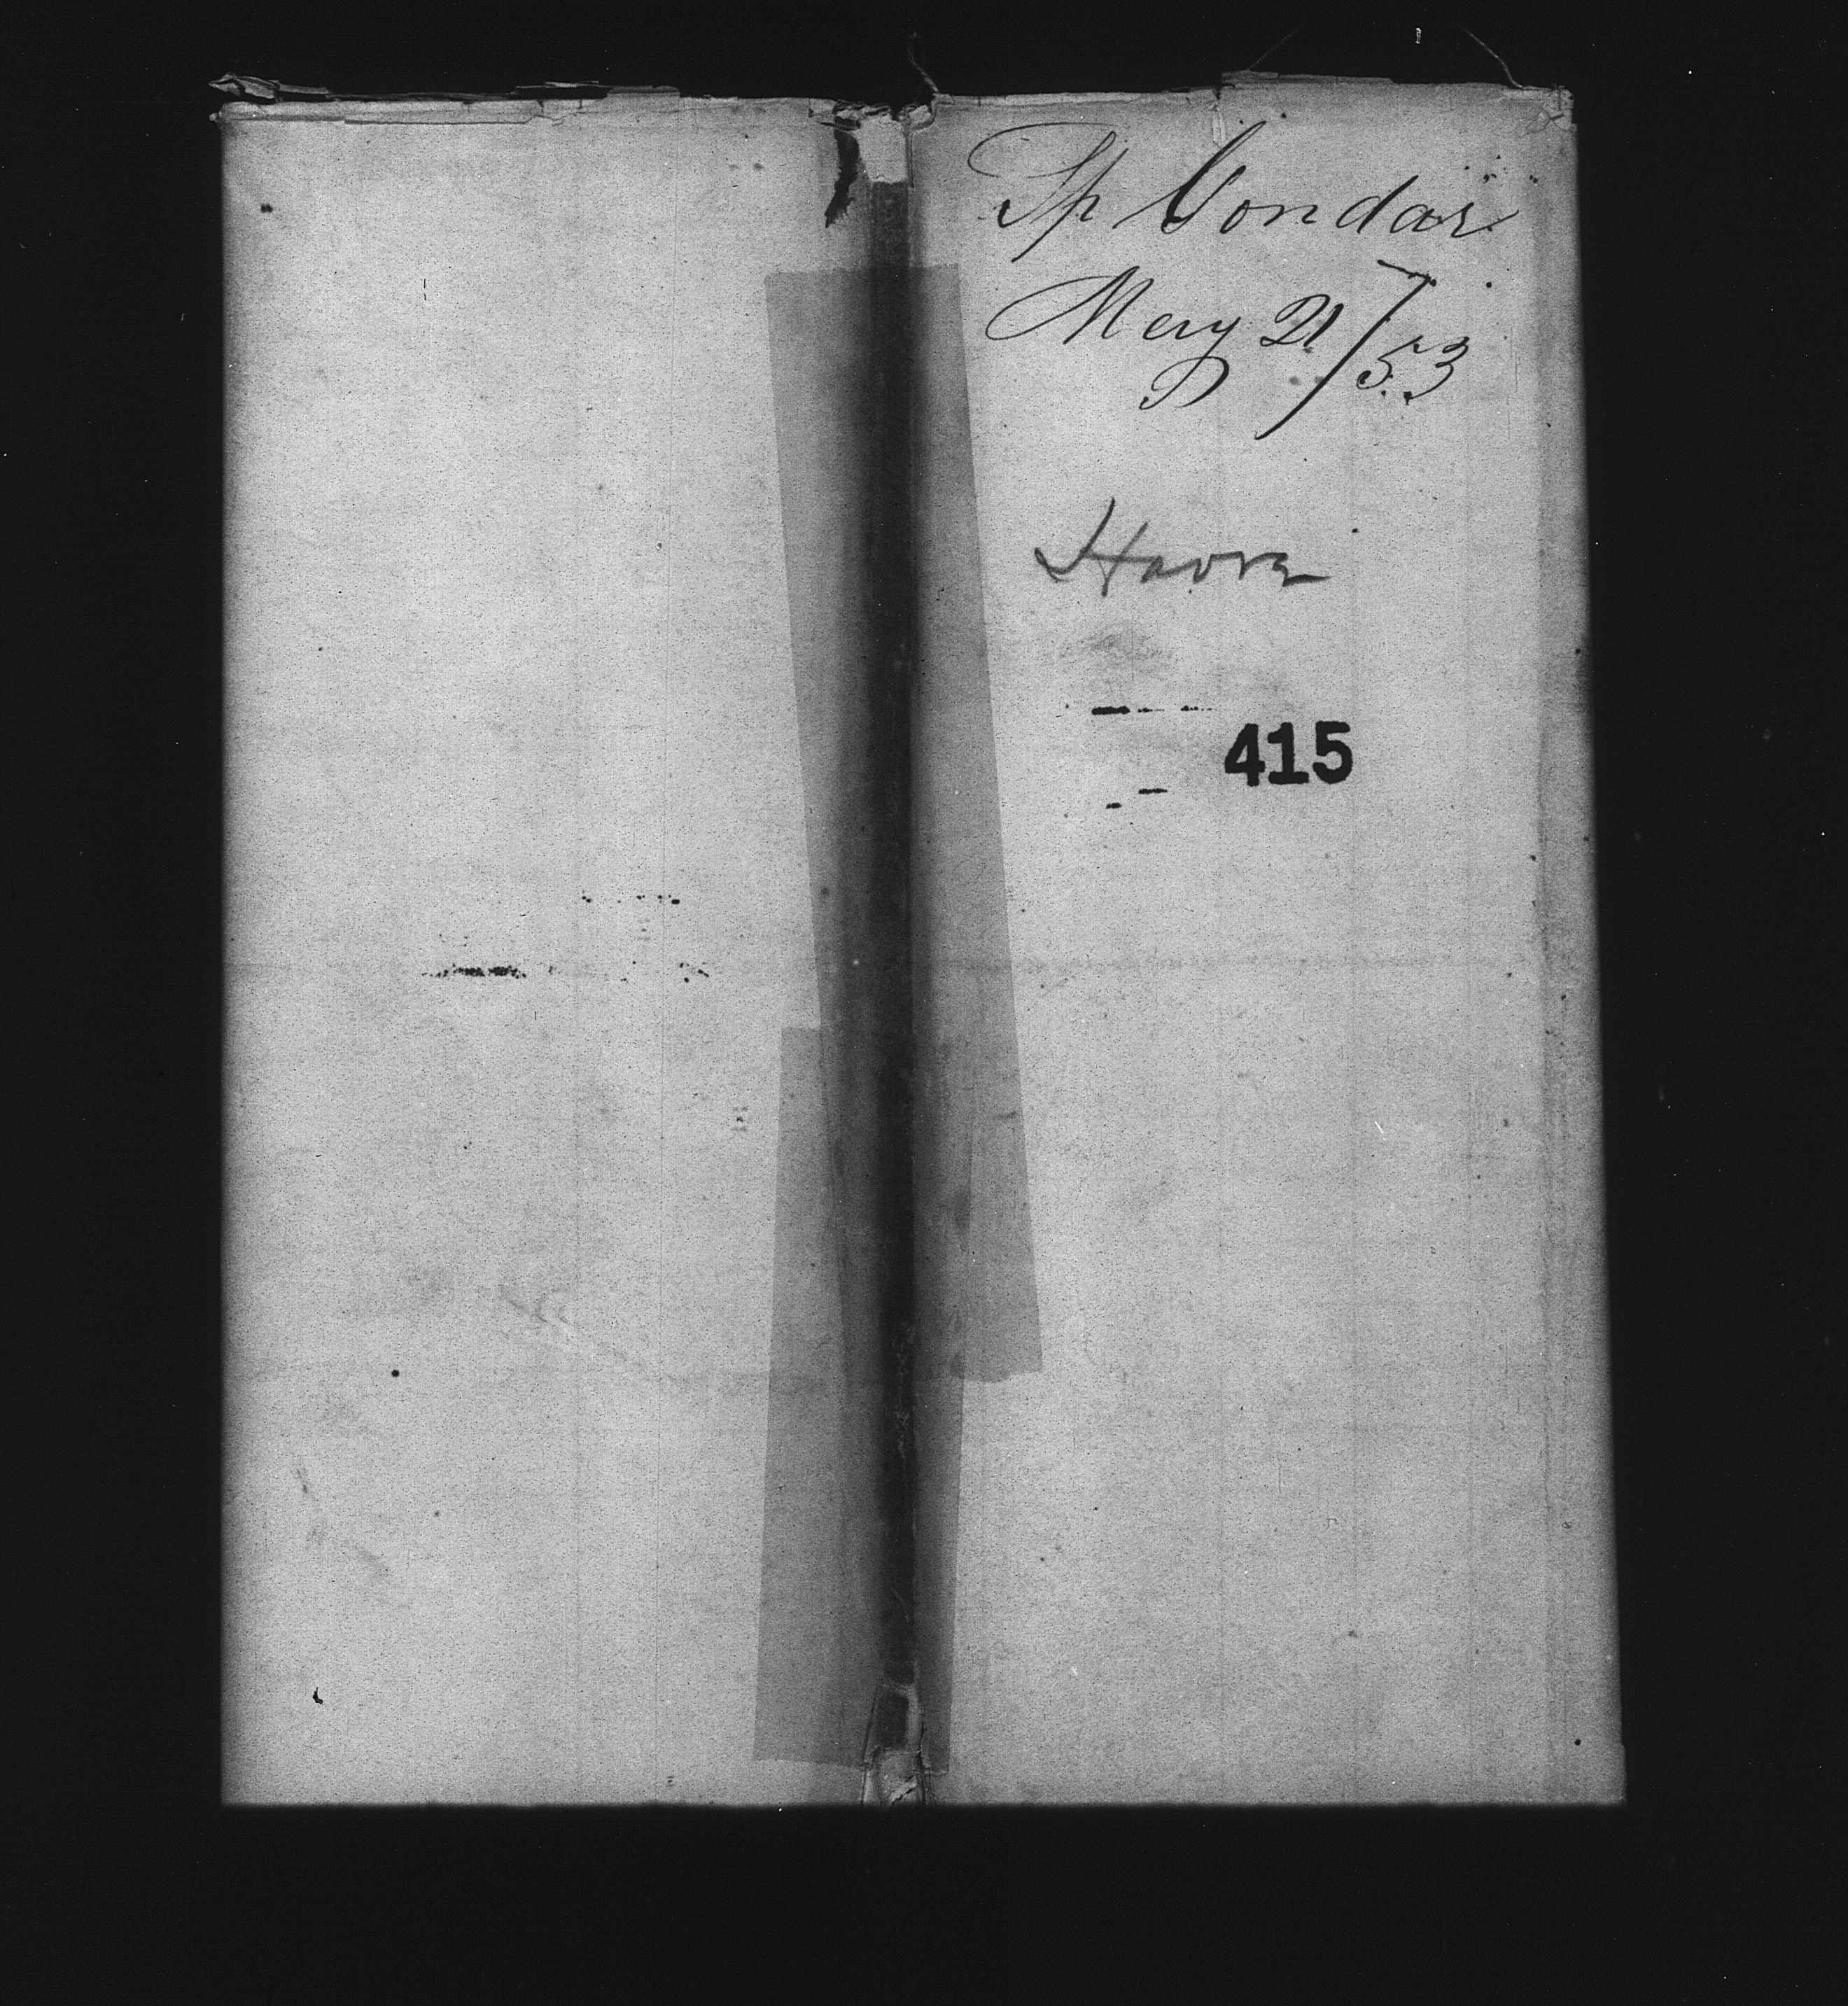 Sp Gondar
May 21/53
Havre
415